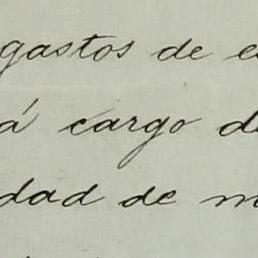 gastos de e
á cargo d
dad de m